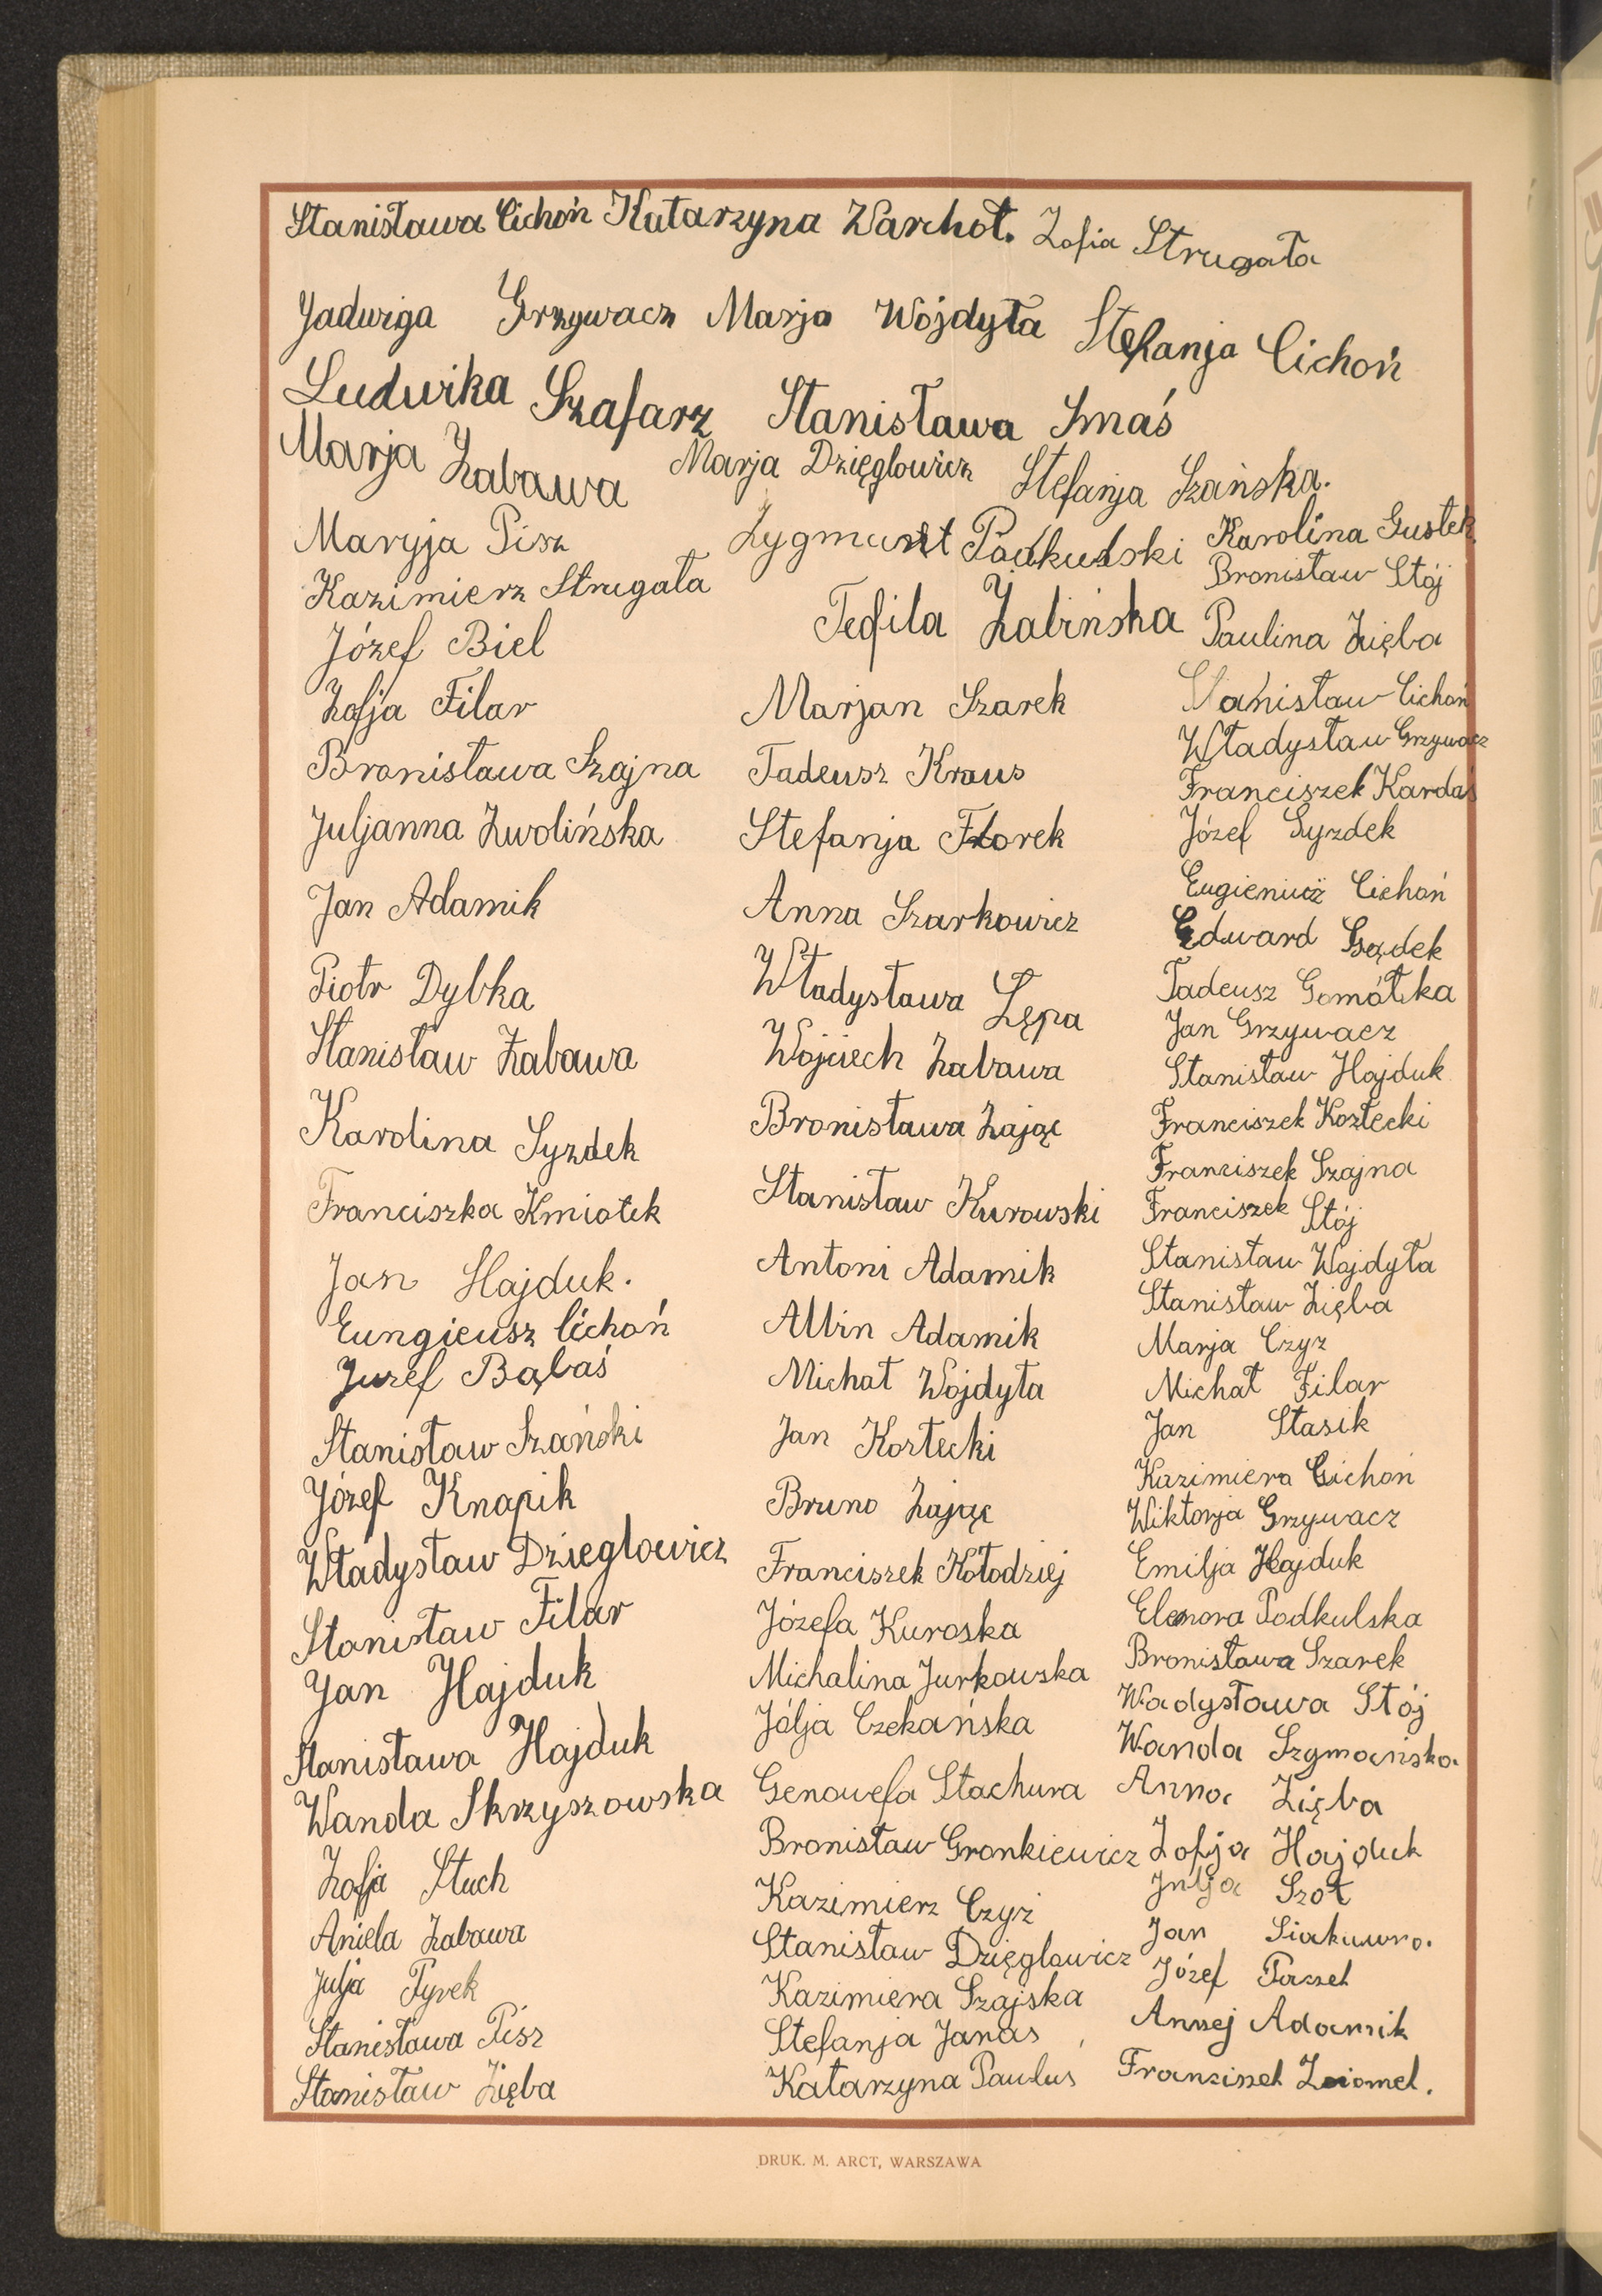 Stanisława Cichoń Katarzyna Warchoł. Zofia Strugała
Jadwiga Grzywacz Marja Wojdyła Stefanja Cichoń
Ludwika Szafarz Stanisława Smaś
Marja Zabawa Marja Dzięglowicz Stefanja Szańska.
Maryja Pisz
Kazimierz Strugała
Józef Biel
Zofja Filar
Bronisława Szajna
Juljanna Zwolińska
Jan Adamik
Piotr Dybka
Stanisław Zabawa
Karolina Syzdek
Franciszka Kmiotek
Jan Hajduk.
Eungieusz Cichoń
Juzef Bąbaś
Stanisław Szański
Józef Knapik
Władysław Dzieglowicz
Stanisław Filar
Jan Hajduk
Stanisława Hajduk
Wanda Skrzyszowska
Zofja Słuch
Aniela Zabawa
Julja Pyrek
Stanisława Pisz
Stanisław Zięba
Zygmunt Podkulski
Teofila Żabińska
Marjan Szarek
Tadeusz Kraus
Stefanja Florek
Anna Szarkowicz
Władysława Lępa
Wojciech Zabawa
Bronisława Zając
Stanisław Kurowski
Antoni Adamik
Albin Adamik
Michał Wojdyła
Jan Kortecki
Bruno Zając
Franciszek Kołodziej
Józefa Kuroska
Michalina Jurkowska
Jólja Czekańska
Genowefa Stachura
Bronisław Gronkiewicz
Kazimierz Czyż
Stanisław Dzięglowicz
Kazimiera Szajska
Stefanja Janas
Katarzyna Paulus
Karolina Gustek
Bronisław Stój
Paulina Zięba
Stanisław Cichoń
Władysław Grzywacz
Franciszek Kardaś
Józef Syzdek
Eugieniusz Cichoń
Edward Sądek
Tadeusz Gomółka
Jan Grzywacz
Stanisław Hajduk
Franciszek Kozłecki
Franciszek Szajna
Franciszek Stój
Stanisław Wojdyła
Stanisław Zięba
Marja Czyż
Michał Filar
Jan Stasik
Kazimiera Cichoń
Wiktorja Grzywacz
Emilja Hajduk
Elenora Podkulska
Bronisława Szarek
Wadysława Stój
Wanda Szymańska
Anna Zięba
Zofja Hajduk
Julja Szot
Jan
Józef
Adamik
DRUK. M. ARCT, WARSZAWA